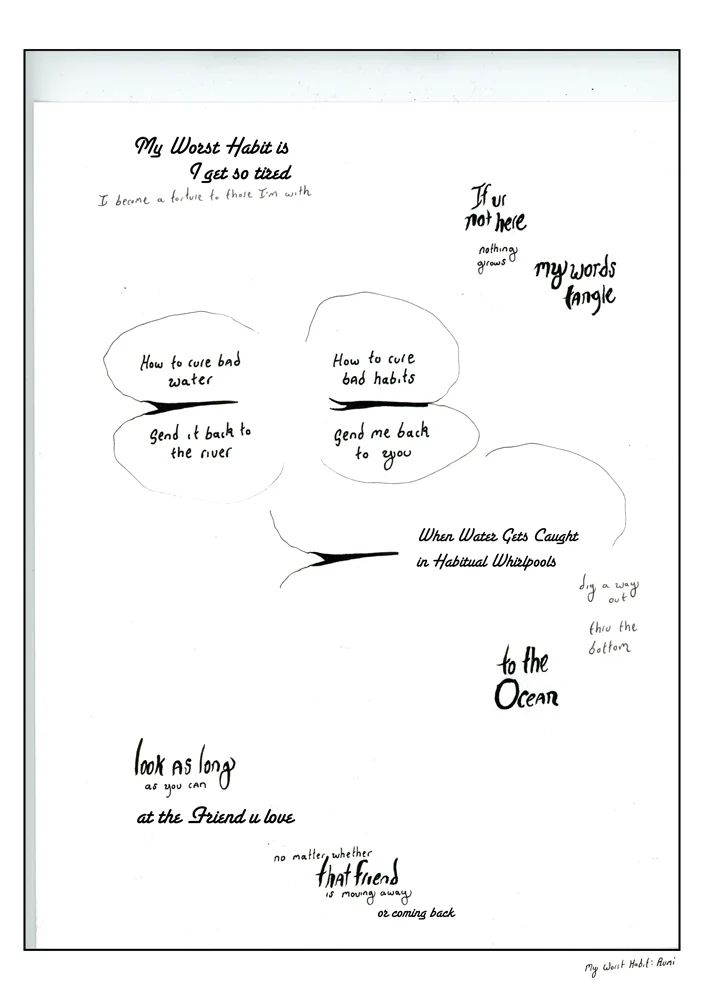 My Worst Habit is
I get so tired
I become a torture to those I'm with
If ur
not here
nothing
grows
my words
tangle
How to cure bad
water
Send it back to
the river
How to cure
bad habits
Send me back
to you
When Water Gets Caught
in Habitual Whirlpools
dig a way
out
thru the
bottom
to the
Ocean
look as long
as you can
at the Friend u love
no matter whether
that friend
is moving away
or coming back
My Worst Habit: Rumi